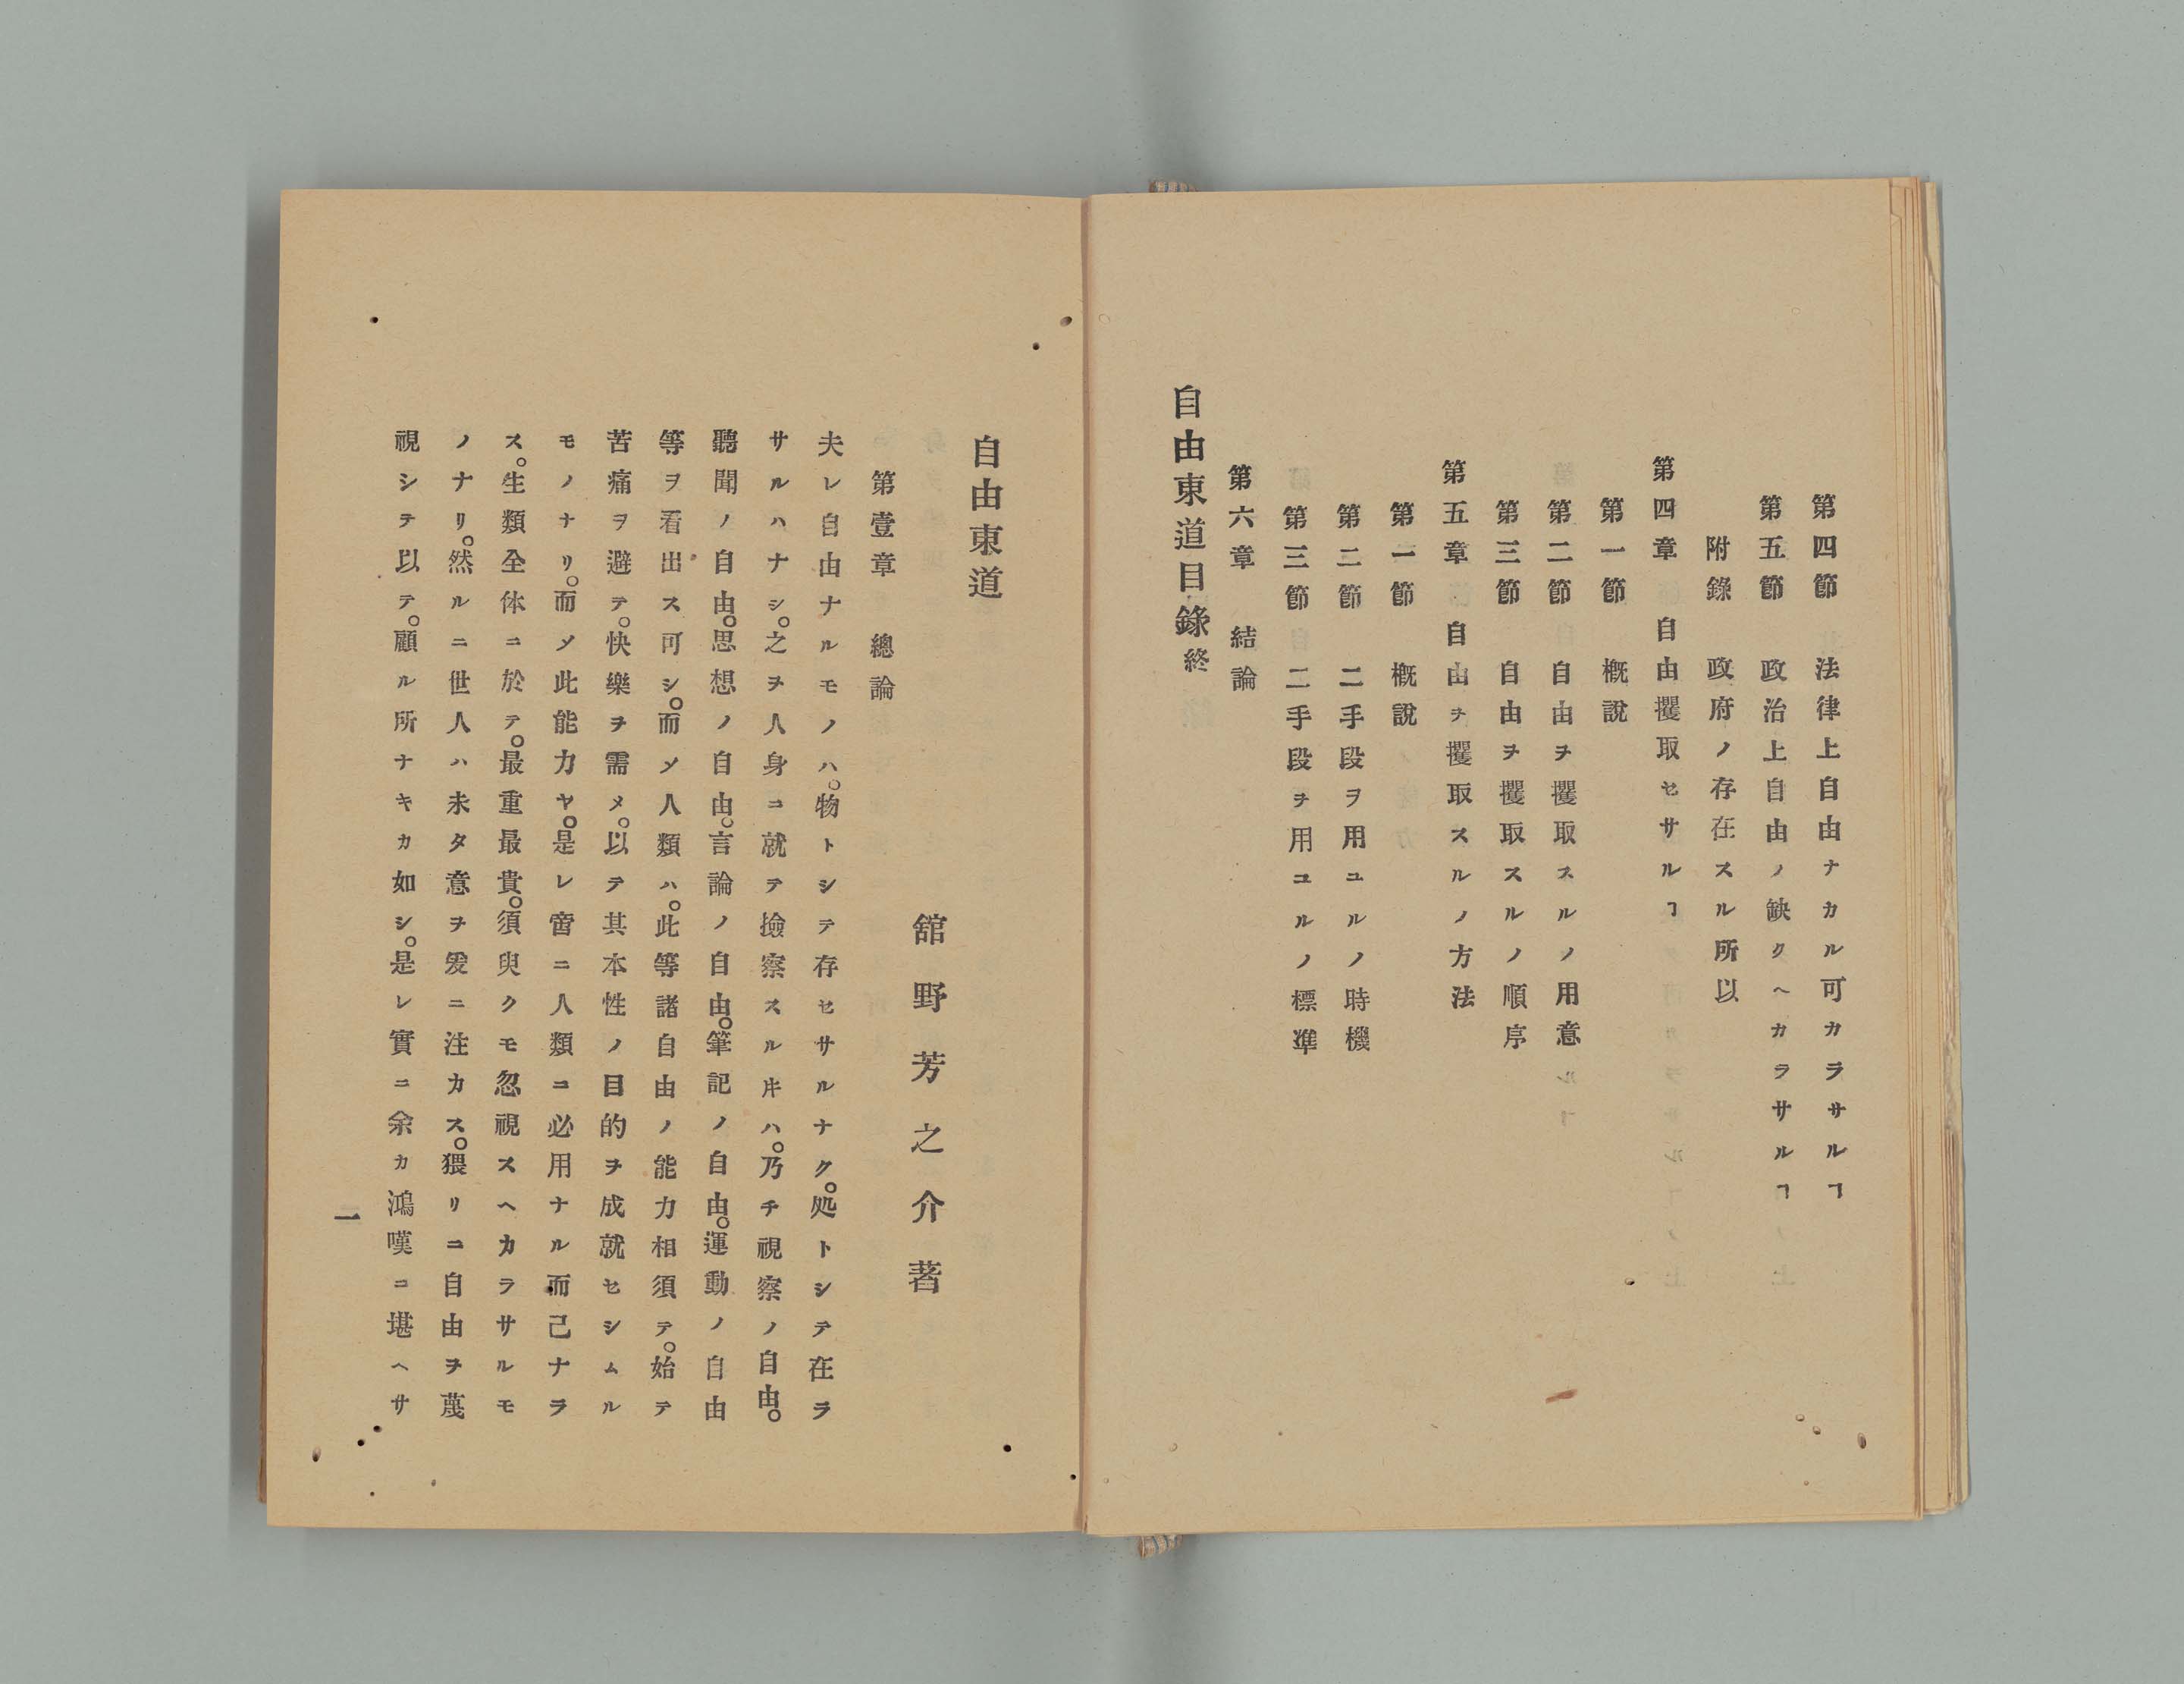 第四節　法律上自由ナカル可カラサルヿ
第五節　政治上自由ノ缺クヘカラサルヿ
附錄　政府ノ存在スル所以
第四章　自由攫取セサルヿ
第一節　概說
第二節　自由ヲ攫取スルノ用意
第三節　自由ヲ攫取スルノ順序
第五章　自由ヲ攫取スルノ方法
第一節　概說
第二節　二手段ヲ用ユルノ時機
第三節　二手段ヲ用ユルノ標準
第六章　結論
自由東道目錄終
自由東道
舘野芳之介著
第壹章　總論
夫レ自由ナルモノハ。物トシテ存セサルナク。処トシテ在ラ
サルハナシ。之ヲ人身ニ就テ撿察スルㇳキハ。乃チ視察ノ自由。
聽聞ノ自由。思想ノ自由。言論ノ自由。筆記ノ自由。運動ノ自由
等ヲ看出ス可シ。而〆人類ハ。此等諸自由ノ能力相須テ。始テ
苦痛ヲ避テ。快樂ヲ需メ。以テ其本性ノ目的ヲ成就セシムル
モノナリ。而〆此能力ヤ。是レ啻ニ人類ニ必用ナル而己ナラ
ス。生類全体ニ於テ。最重最貴。須臾クモ忽視スヘカラサルモ
ノナリ。然ルニ世人ハ未タ意ヲ爰ニ注カス。猥リニ自由ヲ蔑
視シテ以テ。顧ル所ナキカ如シ。是レ實ニ余カ鴻嘆ニ堪ヘサ
一